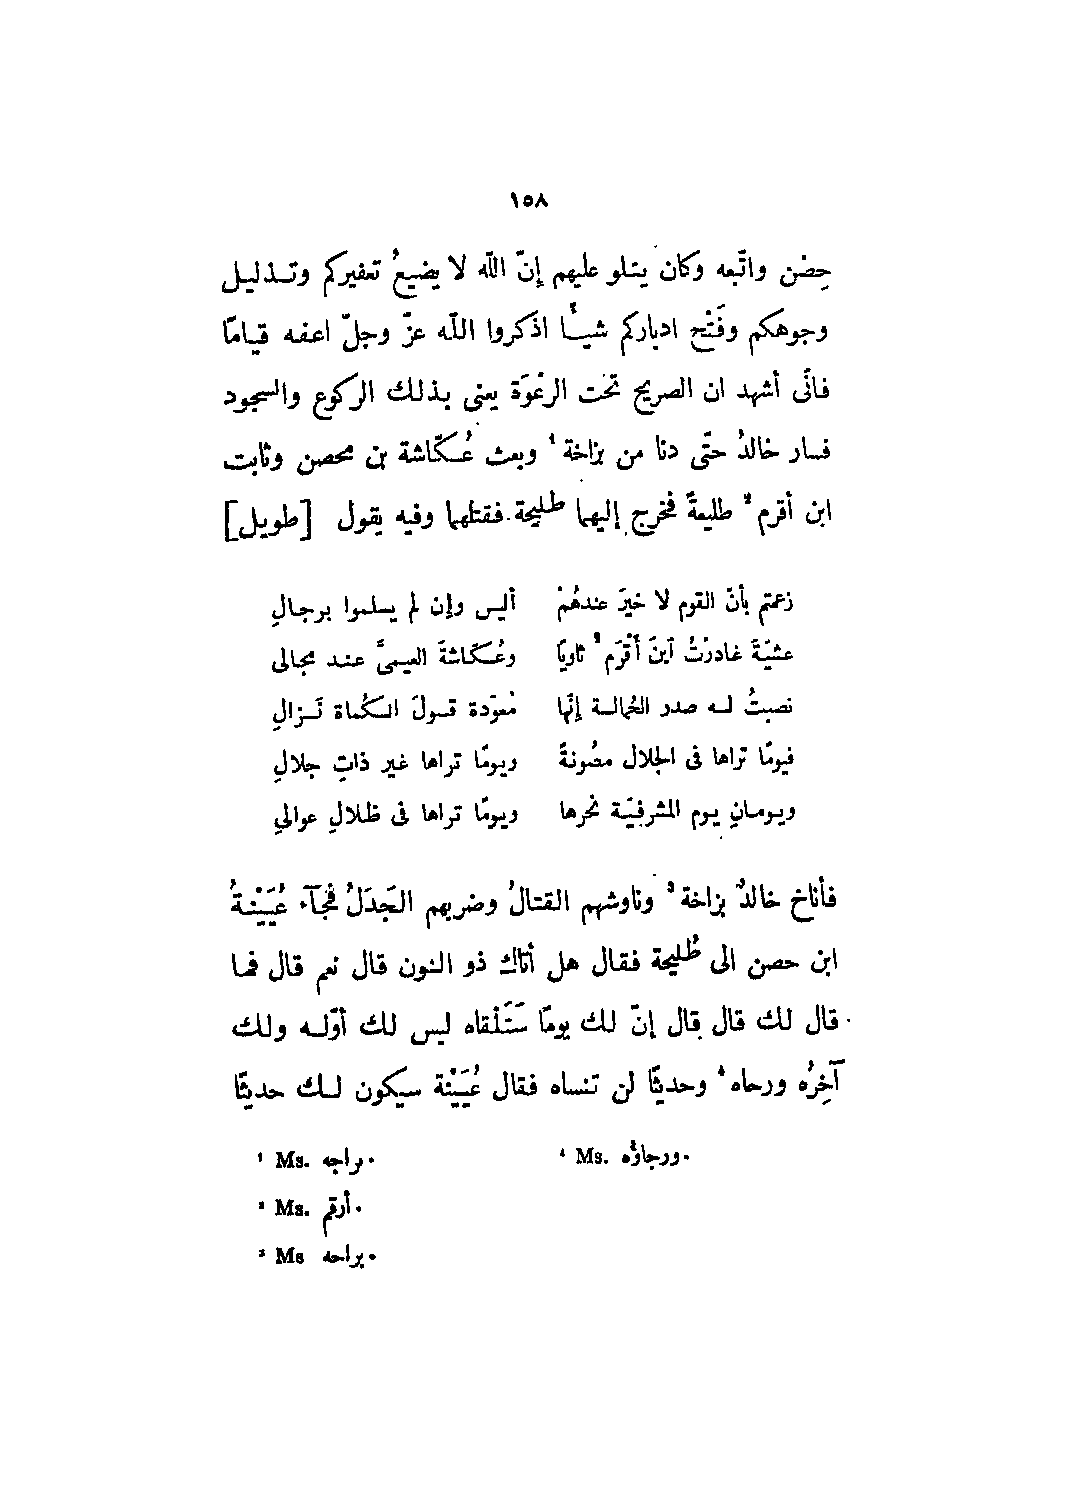 ١٥٨
حِصْن واتّبعه وكان يتلو عليهم إنّ الله لا يضيعُ تعفيركم وتـذليـل
وجوهكم وفَتْح ادباركم شيـأً اذكروا الله عزّ وجلّ اعفه قيـامًا
فانّى أشهد ان الصريح تحت الرغْوَة يعنى بـذلـك الركوع والسجود
فسار خالدُ حتّى دنا من بزاخة ¹ وبعث عُـكّاشة بن محصن وثابت
ابن أقرم ² طليعةً فخرج إليهما طليحة فقتلهما وفيه يقول [طويل]
زعمتم بأنّ القوم لا خيرَ عندهُمْ أليس وإن لم يسلموا برجالِ
عشيّةَ غادرْتُ ٱبنَ أَقْرَم ² ثاويًا وعُـكّاشةَ العيمىَّ عنـد مجالى
نصبتُ لـه صدر الحُمالـة إنّها مُعوّدة قـولَ الـكُماة نَـزالِ
فيومًا تراها فى الجلال مصُونةً ويومًا تراها غير ذاتِ جلالِ
ويومـانِ يوم المشرفيّة نحرها ويومًا تراها فى ظلالِ عوالىِ
فأناخ خالدُ بزاخة ³ وناوشهم القتالُ وضربهم الجَدَلُ فجآء عُيَيْنـةُ
ابن حصن الى طُليحة فقال هل أتاك ذو النون قال نعم قال فما
قال لك قال قال إنّ لك يومًا سَتَلْقاه ليس لك أوّلـه ولك
آخِرُه ورحاه ⁴ وحديثًا لن تنساه فقال عُيَيْنة سيكون لـك حديثًا
¹ Ms. براجه.
⁴ Ms. ورجاؤُه.
² Ms. أرقم.
³ Ms براحه.